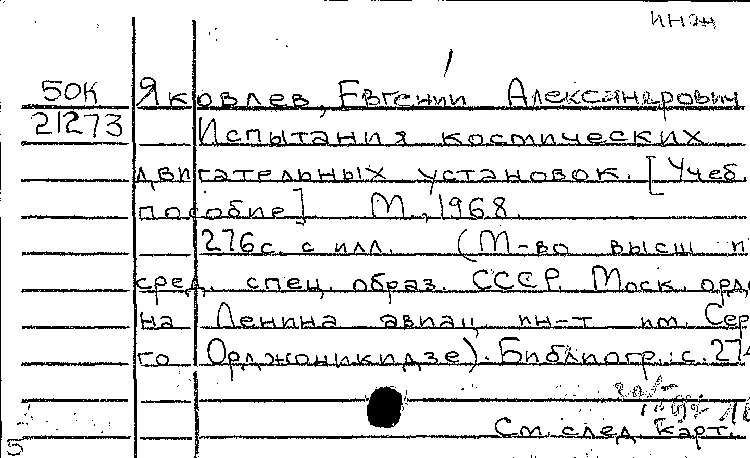 инж
50К Яковлев, Евгений Александрович
21273 Испытания космических
двигательных установок. [Учеб.
пособие] М., 1968.
276 с. с илл. (М-во высш и
сред. спец. образ. СССР. Моск. орде
на Ленина авиац ин-т им. Сер
го Орджоникидзе). Библиогр.: с. 274
См. след. карт.
5